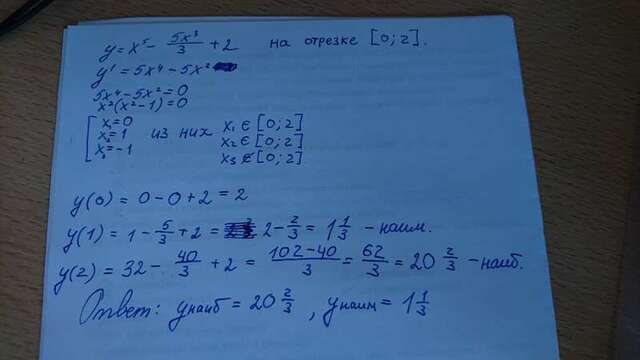 y = x⁵ - 5x³/3 + 2 на отрезке [0; 2].
y' = 5x⁴ - 5x²
5x⁴ - 5x² = 0
x²(x² - 1) = 0
[ x₁ = 0 из них x₁ ∈ [0; 2]
x₂ = 1 x₂ ∈ [0; 2]
x₃ = -1 x₃ ∉ [0; 2]
y(0) = 0 - 0 + 2 = 2
y(1) = 1 - 5/3 + 2 = 2 - 2/3 = 1 1/3 - наим.
y(2) = 32 - 40/3 + 2 = 102-40/3 = 62/3 = 20 2/3 - наиб.
Ответ: yнаиб = 20 2/3, yнаим = 1 1/3